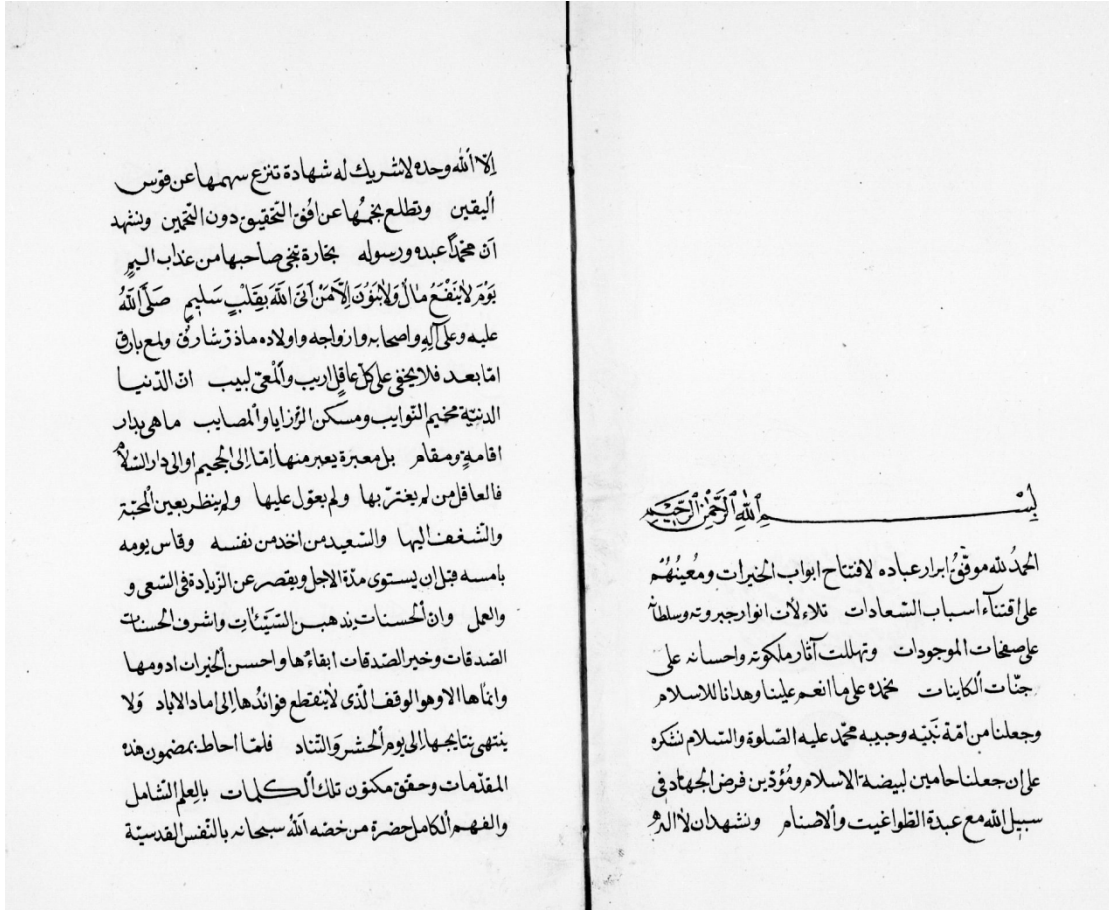 بِسْــــــمِ ٱللهِ ٱلرَّحْمٰنِ ٱلرَّحِيمِ
الحمدُ للّه موفّق ابرار عباده لافتتاح ابواب الخيرات ومُعينُهُم
على اقتنآء اسباب السّعادات تلاءلأت انوار جبروته وسلطانه
على صفحات الموجودات وتهللت آثار ملكوته واحسانه على
جنّات ٱلكاينات نحمده على ما انعم علينا وهدانا للاسلام
وجعلنا من امّة نبيّه وحبيبه محمّد عليه الصّلوة والسّلام نشكره
على ان جعلنا حامين لبيضة الاسلام ومُؤدّين فرض الجهاد فى
سبيل اللّه مع عبدة الطّواغيت وٱلاصنام ونشهد ان لا اله
اِلّا ٱللّه وحده لا شريك له شهادة تنزع سهمها عن قوس
ٱليقين وتطلع نجمُها عن افُق التّحقيق دون التّخمين ونشهد
انّ محمّداً عبده ورسوله تجارة تنجى صاحبها من عذاب اليمٍ
يَوْمَ لاٰ يَنْفَعُ مٰالٌ وَلاٰ بَنُوْنَ اِلاَّ مَنْ اَتَى اللّٰهَ بِقَلْبٍ سَليمٍ صَلَّى اللّٰهُ
عليه وعلى آلِهِ واصحابه وازواجه واولاده ماذرّ شارقٌ ولمع بارق
امّا بعد فلا يخفى على كلّ عاقلٍ اريب وٱلْمعىّ لبيب انّ الدّنيا
الدنيّة مخيم النّوايب ومسكن الرّزايا وٱلمصايب ما هى بدار
اقامةٍ ومقام بل معبرة يعبر منها اِمّا اِلى ٱلجحيم او الى دار السّلام
فالعاقل من لم يغترّ بها ولم يعوّل عليها ولم ينظر بعين ٱلمحبّة
والشّغف اليها والسّعيد من اخد من نفسه وقاس يومه
بامسه قبل اِن يستوى مدّة الاجل ويقصر عن الزّيادة فى السّعى و
والعمل وانّ ٱلحسنات يذهبن السّيّئات واشرف الحسنات
الصّدقات وخير الصّدقات ابقاءُها واحسن ٱلخيرات ادومها
وانماها الا وهو الوقف الّذى لاٰ ينقطع فوائدُها اِلى اماد الاباد وَلا
ينتهى نتايجها الى يوم ٱلحشر وَالتّناد فلمّا احاط بمضمون هذه
المقدّمات وحقّق مكنون تلك ٱلكلمات بالعلم الشّامل
والفهم ٱلكامل حضرة من خصّه ٱللّه سبحانه بالنّفس القدسيّة